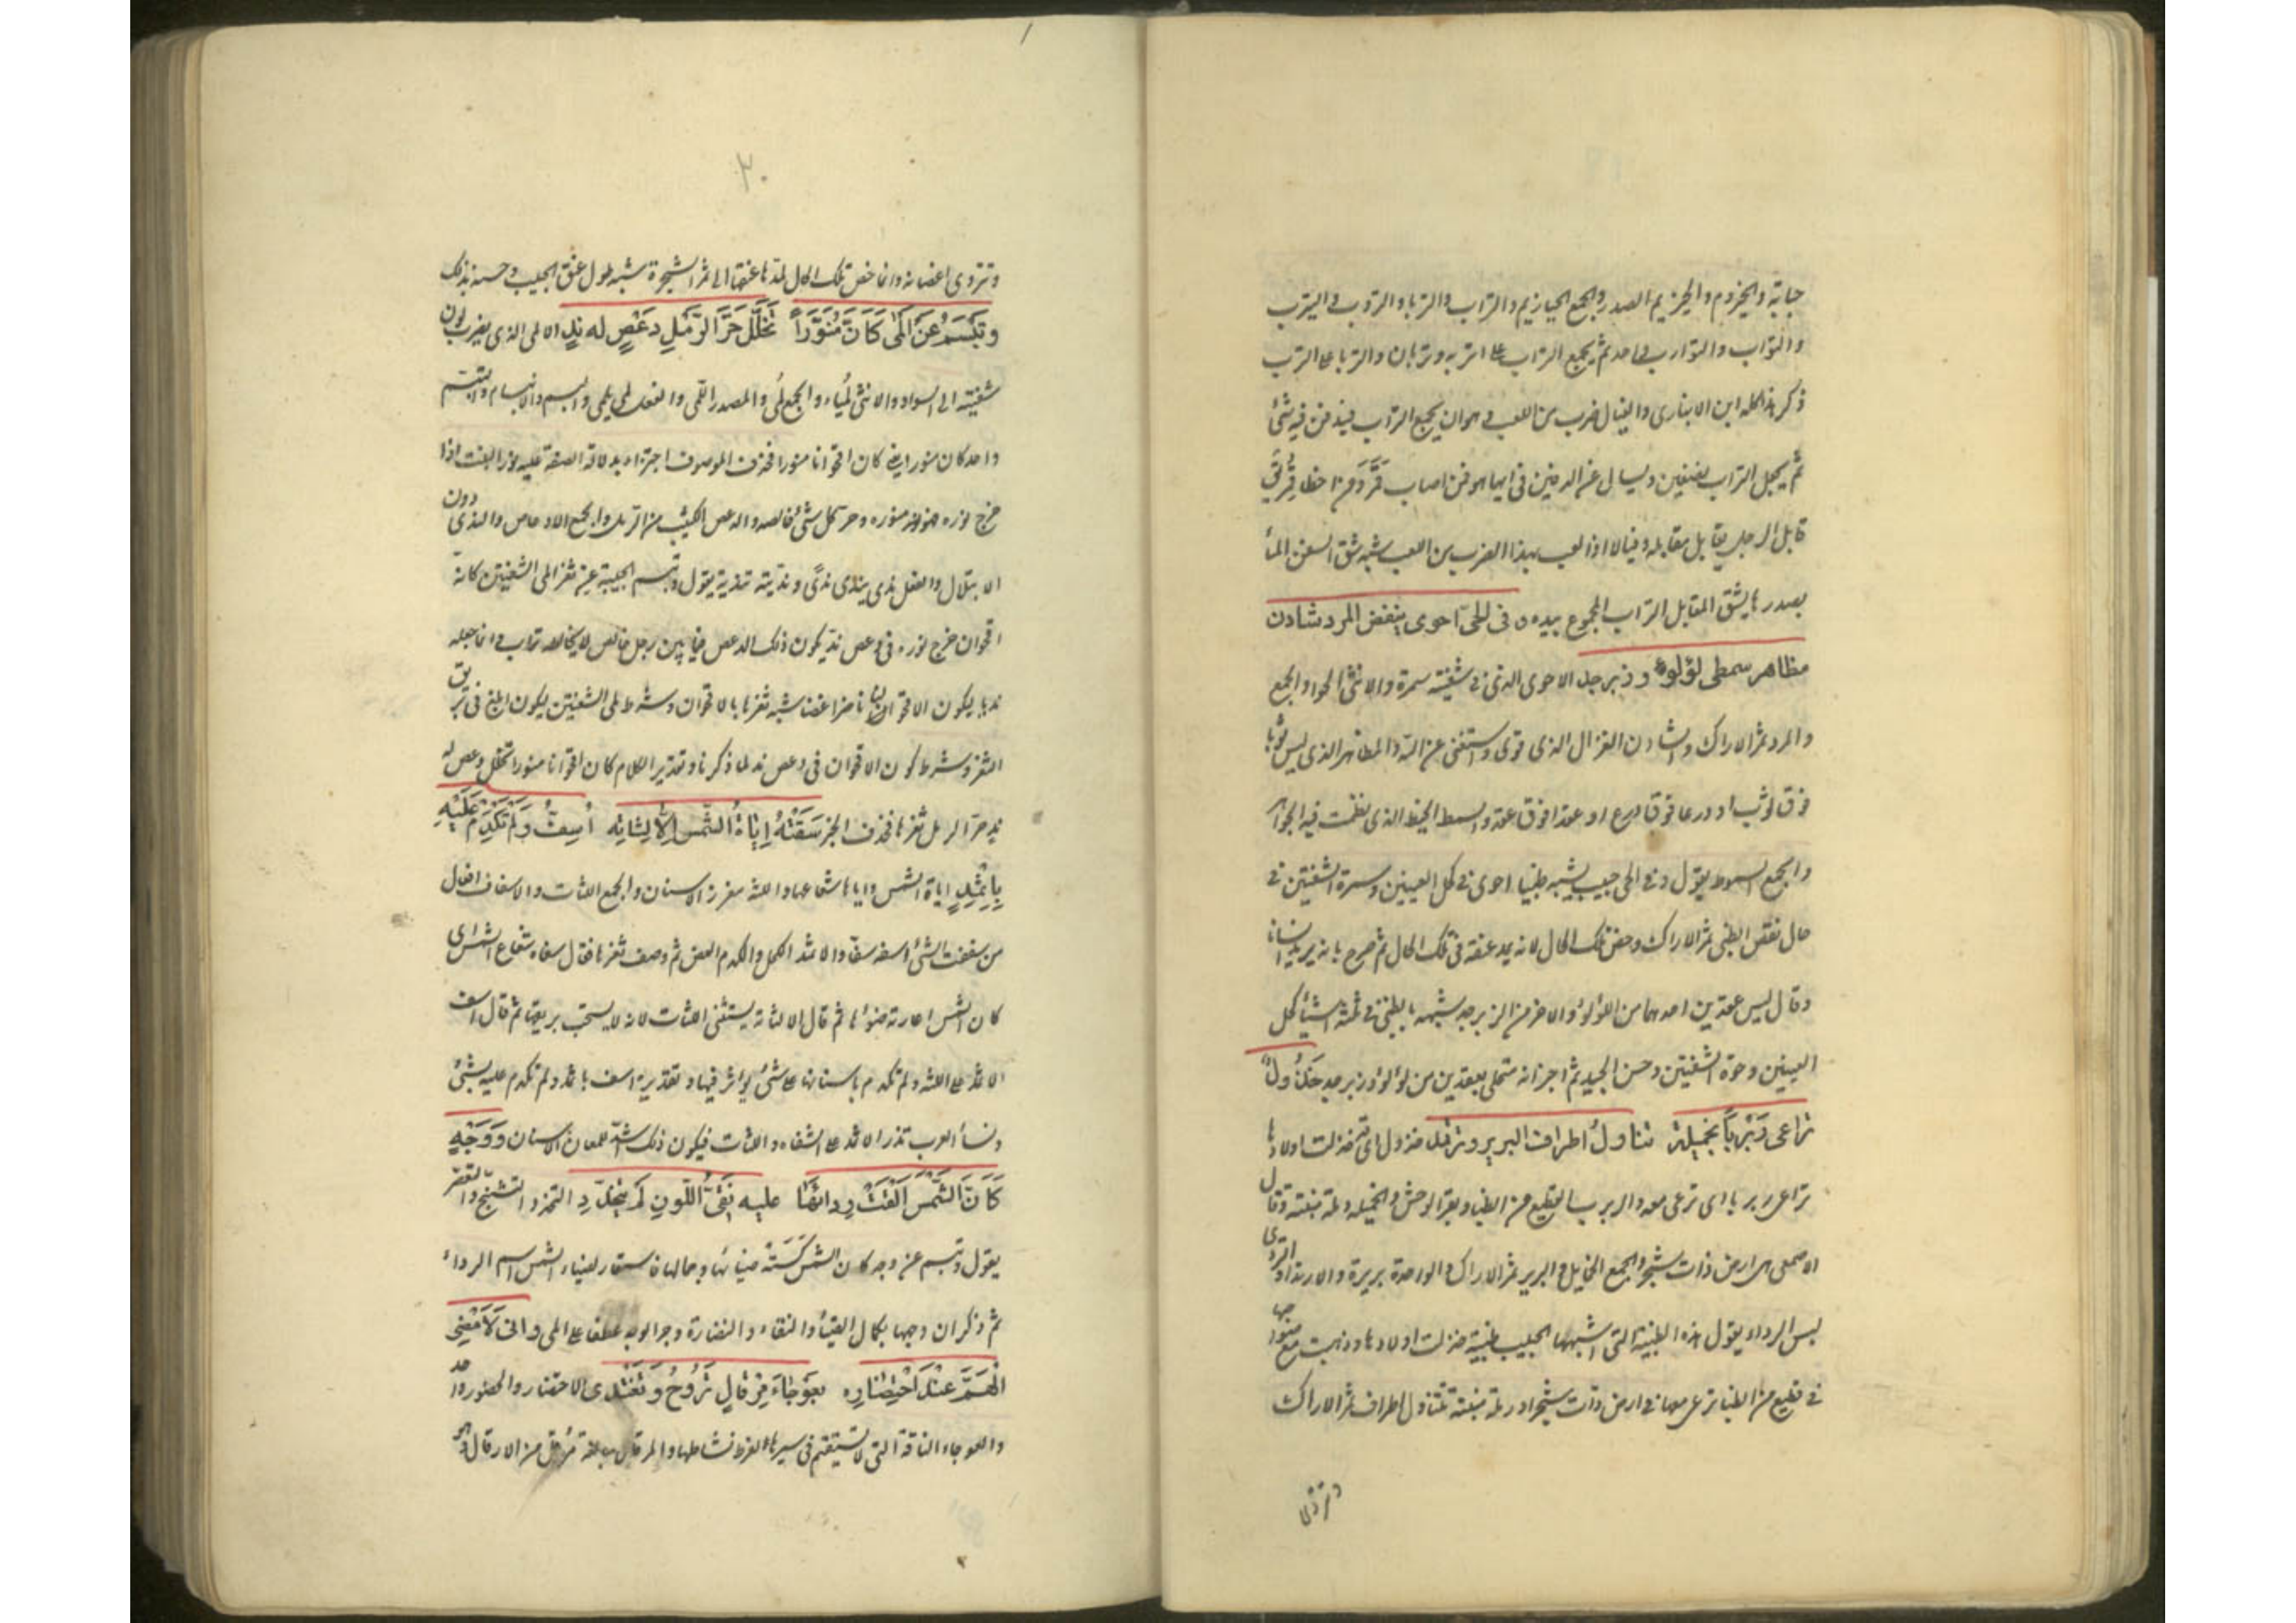 حبابة والحيزوم والحيزيم الصدر والجمع الحيازيم والتراب والتربا والتورب والتيرب
والتوراب والتوارب واحد ثم يجمع التراب على اتربة وتربان والتربا على الترب
ذكر هذا كله ابن الانباري والفيال ضرب من اللعب وهو ان يجمع التراب فيدفن فيه شئ
ثم يجعل التراب نصفين ويسال عن الدفين في ايهما هو فمن اصاب قمر ومن اخطا قمر يق
فايل الرجل يفايل مفايلة وفيالا اذا لعب بهذا الضرب من اللعب شبه شق السفن الماء
بصدرها بشق المفايل التراب المجموع بيده وفى الحىّ احوى ينفض المرد شادن
مظاهر سمطى لؤلؤ وزبرجد الاحوى الذى في شفتيه سمرة والانثى الحوا والجمع
والمرد ثمر الاراك والشادن الغزال الذى قوى واستغنى عن امه والمظاهر الذى لبس ثوبا
فوق ثوب او درعا فوق درع او عقدا فوق عقد والسمط الخيط الذى نظمت فيه الجواهر
والجمع السموط يقول وفى الحى حبيب يشبه ظبيا احوى في كحل العينين وسمرة الشفتين في
حال نفض الظبى ثمر الاراك وخص تلك الحال لانه يمد عنقه في تلك الحال ثم صرح بانه يريد انسانا
وقال لبس عقدين احدهما من اللؤلؤ والاخر من الزبرجد شبهه بالظبى في ثلثة اشيا كحل
العينين وحوة الشفتين وحسن الجيد ثم اخبر انه متحلى بعقدين من لؤلؤ وزبرجد خَذُولٌ
تراعى رَبْرَباً بخَميلة تناولُ اطراف البرير وترتدى خذول اى خذلت اولادها
تراعى ربربا اى ترعى معه والربرب القطيع من الظبا وبقر الوحش والخميلة رملة منبتة وقال
الاصمعى هى ارض ذات شجر والجمع الخمايل والبرير ثمر الاراك والواحدة بريرة والارتدا والتردى
لبس الرداء يقول هذه الظبية التى اشبهها الحبيب ظبية خذلت اولادها وذهبت مع صواحبها
في قطيع من الظبا ترعى معها في ارض ذات شجر او رملة منبتة تتناول اطراف ثمر الاراك
وترتدى
٢٠
وترتدى اغصانه وانما خص تلك الحال لمدها عنقها الى ثمر الشجرة شبه طول عنق الحبيب وحسنه بذلك
وتَبْسَمُ عَن اَلْمَى كَاَنَّ مُنَوِّراً تَخَلَّلَ حَرَّ الرَّمْلِ دِعْصٍ له نَدٍ الالمى الذى يضرب لون
شفتيه الى السواد والانثى لمياء والجمع لُمى والمصدر اللمى والفعل لمى يلمى والبسم والابتسام والتبسم
واحد كان منورا يعنى كان اقحوانا منورا فحذف الموصوف اجتزاء بدلالة الصفة عليه نور النبت اذا
خرج نوره فهو منور وحر كل شئ خالصه والدعص الكثيب من الرمل والجمع الادعاص والندى دون
الابتلال والفعل ندى يندى ندى ونديته تندية يقول وتبسم الحبيبة عن ثغر المى الشفتين كانه
اقحوان خرج نوره في دعص ند يكون ذلك الدعص فيما بين رمل خالص لا يخالطه تراب وانما جعله
نديا ليكون الاقحوان غضا ناضرا شبه ثغرها بالاقحوان وشرط لمى الشفتين ليكون ابلغ في بريق
الثغر وشرط كون الاقحوان في دعص ند لما ذكرنا وتقدير الكلام كان اقحوانا منورا تخلل دعص له
ند حر الرمل ثغرها فحذف الخبر سَقَتْهُ اِيَاةُ الشّمس اِلّا لِثاتِه اُسِفَّ وَلَمْ تَكْدِمْ عَلَيْهِ
بِاِثْمِدِ اياة الشمس واياها شعاعها واللثة مغرز الاسنان والجمع اللثات والاسفاف افعال
من سففت الشئ اسفه سفا والاثمد الكحل والكدم العض ثم وصف ثغرها فقال سقاه شعاع الشمس اى
كان الشمس اعارته ضوءها ثم قال الا لثاته يستثنى اللثات لانه لا يستحب بريقها ثم قال اسف
الاثمد على اللثة ولم تكدم باسنانها على شئ يؤثر فيها وتقديره اسف باثمد ولم تكدم عليه بشئ
ونساء العرب تذر الاثمد على الشفاه واللثات فيكون ذلك اشد للمعان الاسنان وَوَجْهٍ
كَاَنَّ الشَّمْسَ اَلْقَتْ رِدائَها عليه نَقِىُّ اللَّونِ لَم يتخدّدِ التخدد التشنج والتغضن
يقول وتبسم عن وجه كان الشمس كسته ضيائها وجمالها فاستعار لضياء الشمس اسم الرداء
ثم ذكر ان وجهها بكمال الضيا والنقاء والنضارة وجر الوجه عطفا على المى وانى لَاُمْضِى
الهَمَّ عِنْدَ احْتِضارِه بعَوْجَاءَ مِرقالٍ تَرُوحُ وَتَغْتَدى الاحتضار والحضور واحد
والعوجاء الناقة التى لا تستقيم في سيرها لفرط نشاطها والمرقال مبالغة مرقل من الارقال وهو